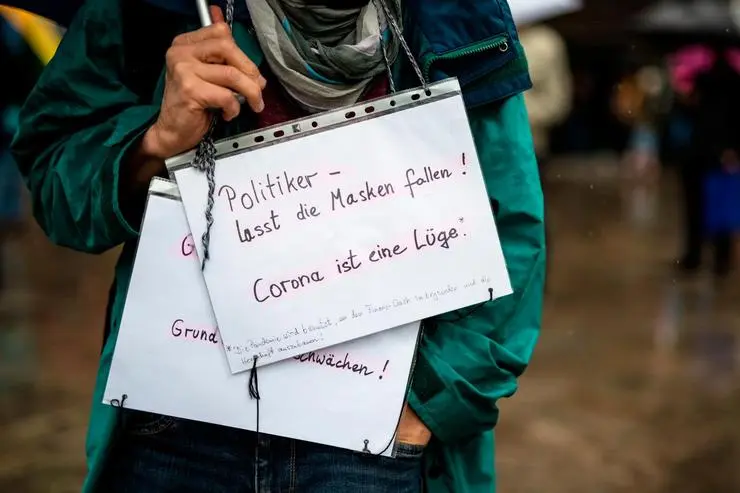 Politiker –
lasst die Masken fallen!
Corona ist eine Lüge*.
*Die Pandemie wird benutzt, um den Finanz-Crash zu begründen und die
Herrschaft auszubauen!
G
Grund
chwächen!